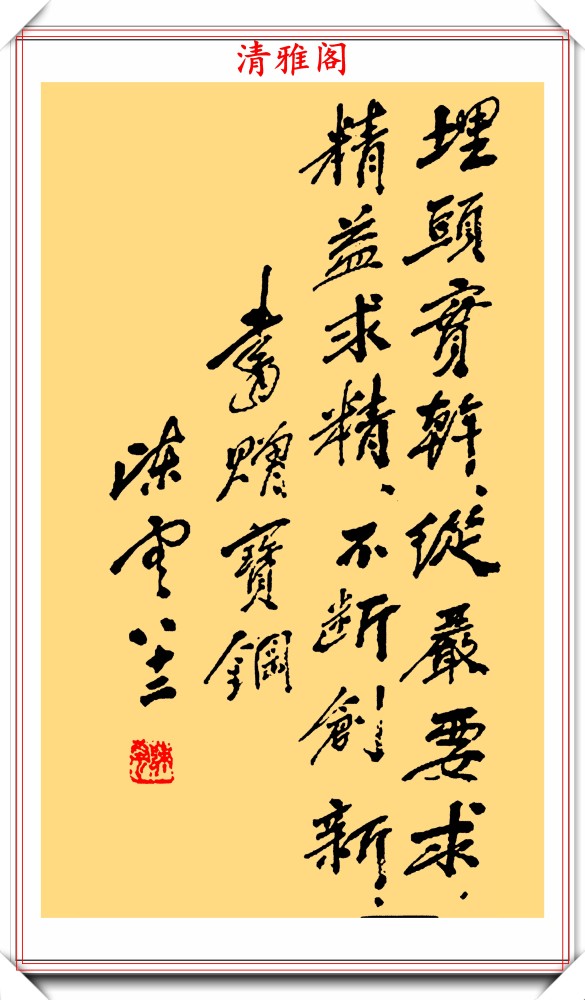 清雅阁
埋頭實幹、從嚴要求、
精益求精、不断創新、
書贈寶鋼
陳雲八十二